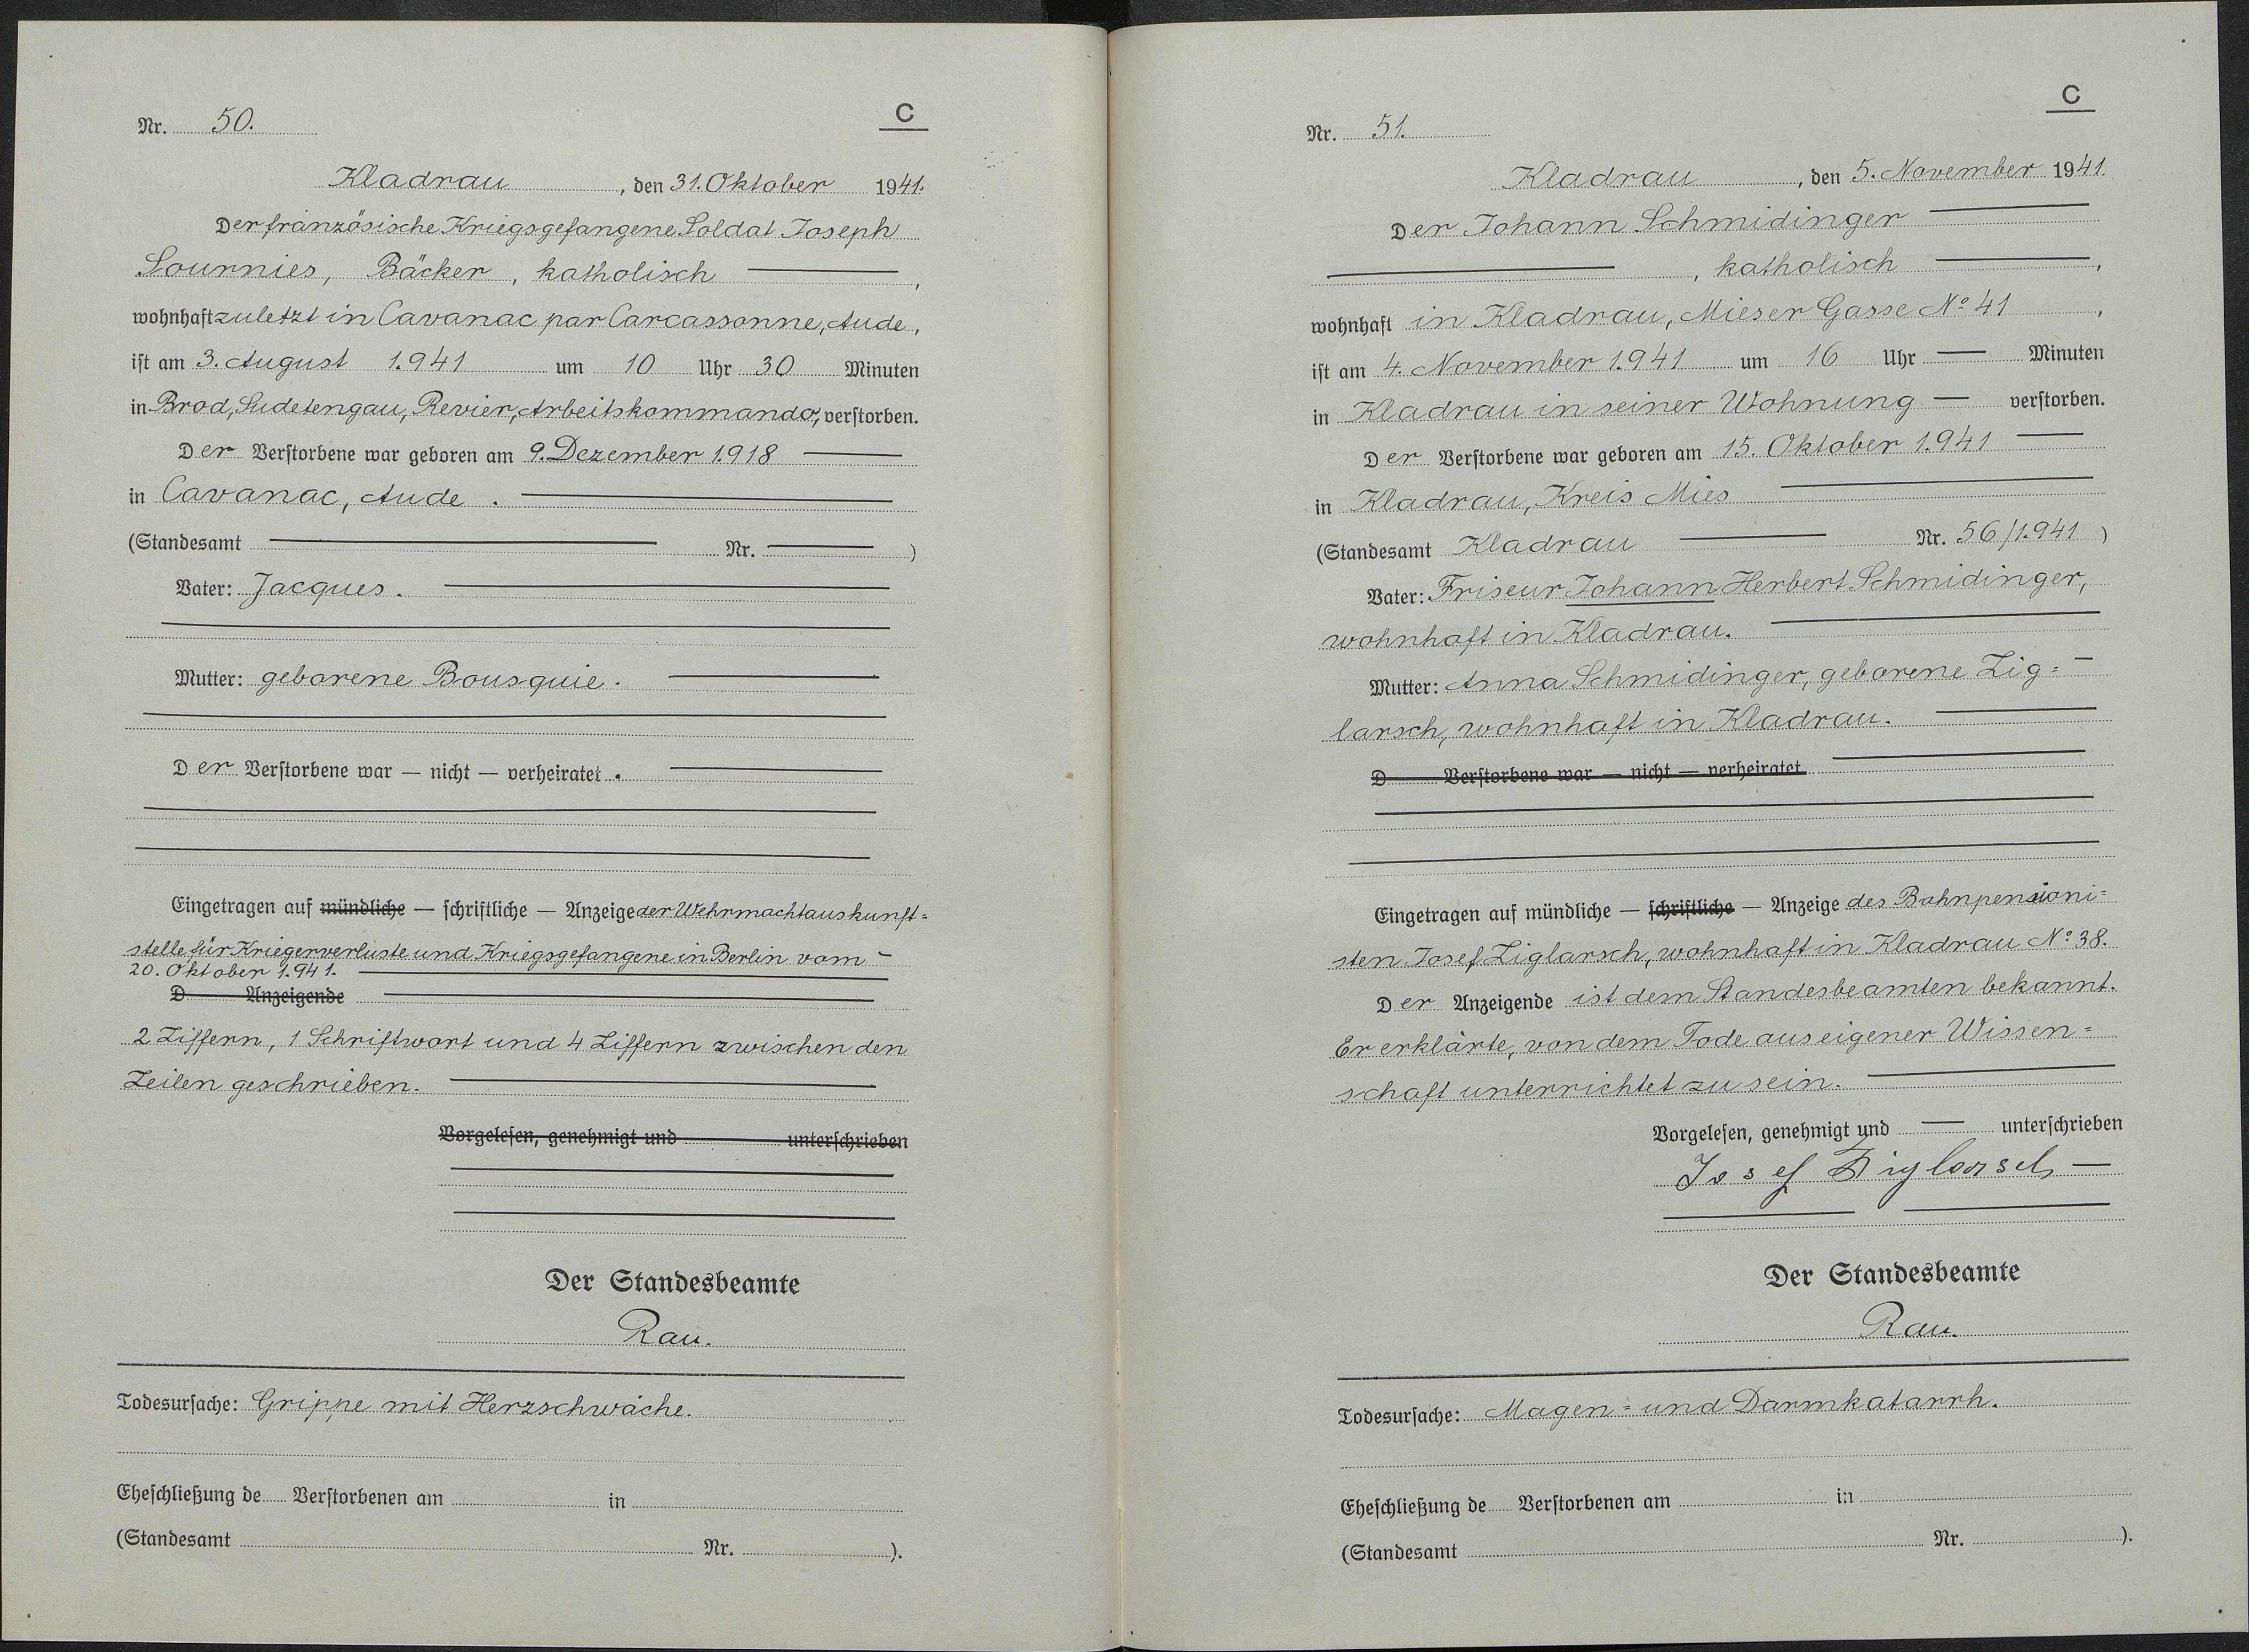 Nr. 50.
C
Kladrau, den 31. Oktober 1941.
Der französische Kriegsgefangene Soldat Joseph
Sournies, Bäcker, katholisch
wohnhaft zuletzt in Cavanac par Carcassonne, Aude,
ist am 3. August 1.941 um 10 Uhr 30 Minuten
in Brod, Sudetengau, Revier, Arbeitskommando, verstorben.
Der Verstorbene war geboren am 9. Dezember 1.918
in Cavanac, Aude.
(Standesamt Nr. )
Vater: Jacques.
Mutter: geborene Bousquie.
Der Verstorbene war — nicht — verheiratet.
Eingetragen auf mündliche — schriftliche — Anzeige der Wehrmachtauskunft=
stelle für Kriegerverluste und Kriegsgefangene in Berlin vom
20. Oktober 1.941.
D Anzeigende
2 Ziffern, 1 Schriftwort und 4 Ziffern zwischen den
Zeilen geschrieben.
Vorgelesen, genehmigt und unterschrieben
Der Standesbeamte
Rau.
Todesursache: Grippe mit Herzschwäche.
Eheschließung de Verstorbenen am in
(Standesamt Nr. ).
Nr. 51.
C
Kladrau, den 5. November 1941.
Der Johann Schmidinger
, katholisch ,
wohnhaft in Kladrau, Mieser Gasse No 41 ,
ist am 4. November 1.941 um 16 Uhr — Minuten
in Kladrau in seiner Wohnung — verstorben.
Der Verstorbene war geboren am 15. Oktober 1.941
in Kladrau, Kreis Mies
(Standesamt Kladrau Nr. 56/1.941 )
Vater: Friseur Johann Herbert Schmidinger,
wohnhaft in Kladrau.
Mutter: Anna Schmidinger, geborene Zig=
larsch, wohnhaft in Kladrau.
D Verstorbene war — nicht — verheiratet
Eingetragen auf mündliche — schriftliche — Anzeige des Bahnpensioni=
sten Josef Ziglarsch, wohnhaft in Kladrau No 38.
Der Anzeigende ist dem Standesbeamten bekannt.
Er erklärte, von dem Tode aus eigener Wissen=
schaft unterrichtet zu sein.
Vorgelesen, genehmigt und — unterschrieben
Josef Ziglarsch
Der Standesbeamte
Rau.
Todesursache: Magen= und Darmkatarrh.
Eheschließung de Verstorbenen am in
(Standesamt Nr. ).